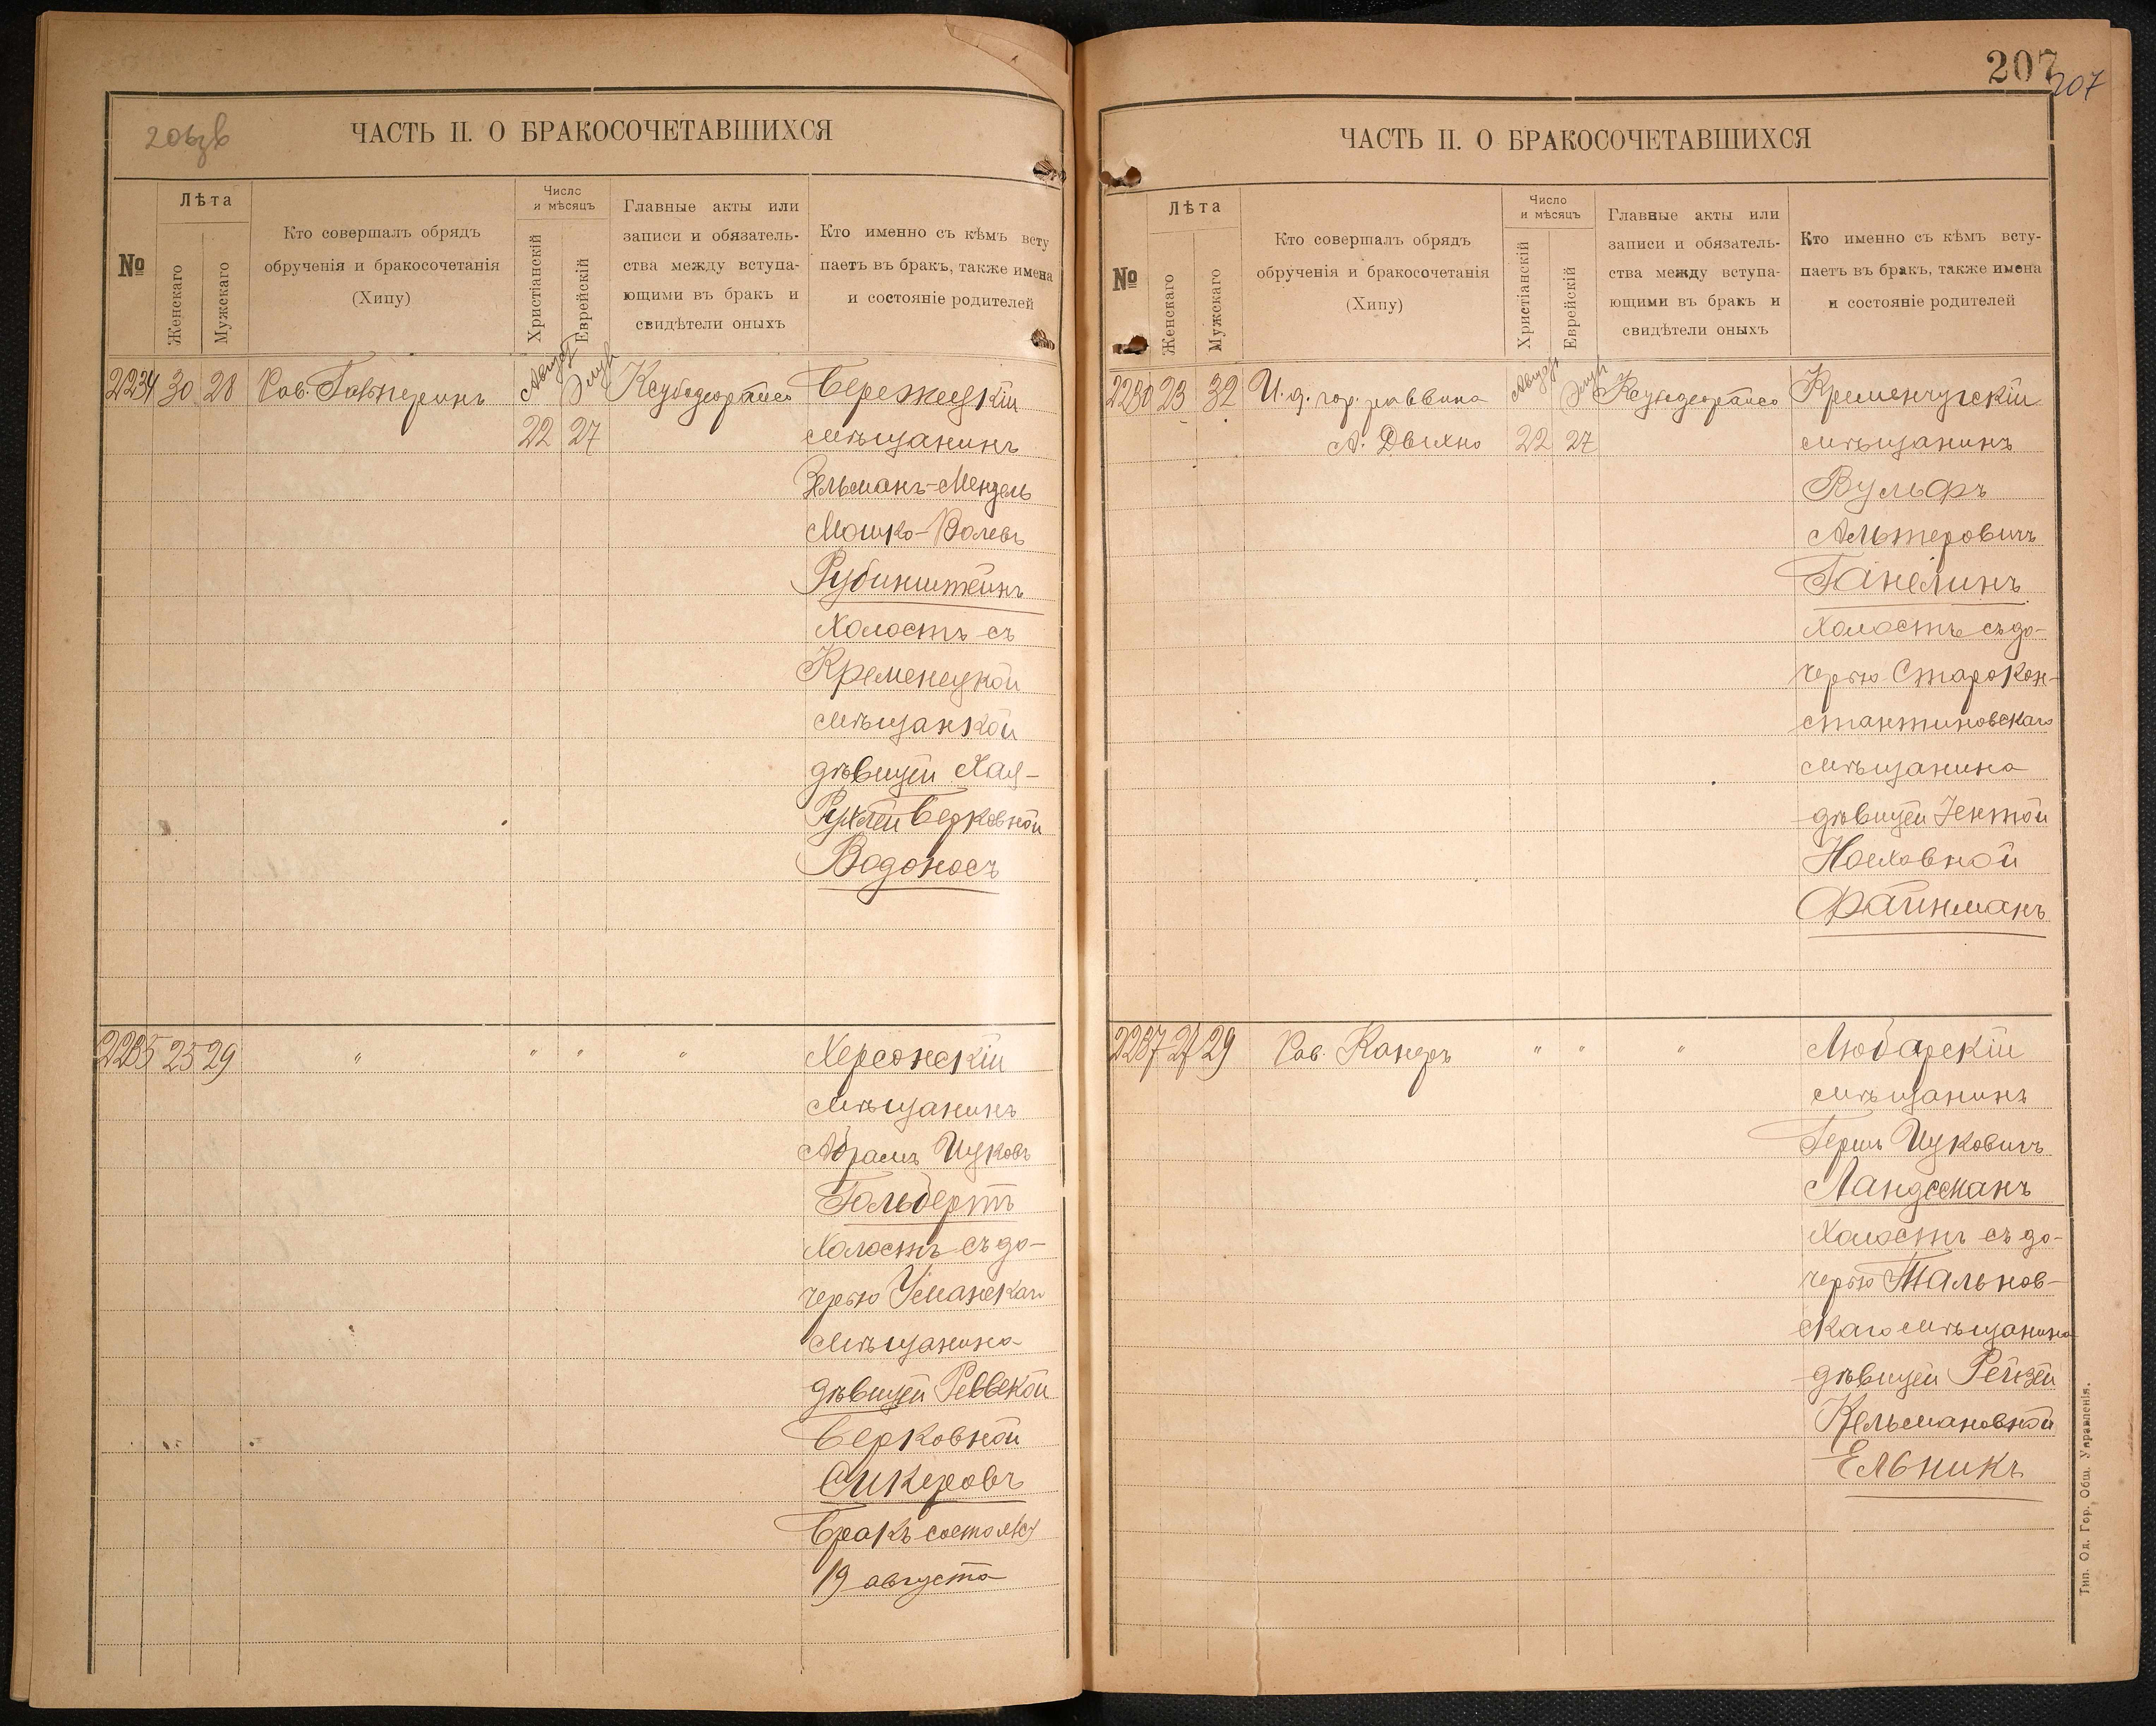 206зв
ЧАСТЬ II. О БРАКОСОЧЕТАВШИХСЯ
№
Лѣта
Женскаго
Мужскаго
Кто совершалъ обрядъ
обрученія и бракосочетанія
(Хипу)
Число
и мѣсяцъ
Христіанскій
Еврейскій
Главные акты или
записи и обязатель-
ства между вступа-
ющими въ бракъ и
свидѣтели оныхъ
Кто именно съ кѣмъ всту
паетъ въ бракъ, также имена
и состояніе родителей
2234 30 28 Рав. Гальперинъ Август Элул Ксубодеорайсо Бережецкій
22 27 мѣщанинъ
Зельманъ-Мендель
Мошко-Волевъ
Рубинштейнъ
холостъ съ
Кременецкой
мѣщанкой
дѣвицей Хая-
Рухлей Берковной
Водоносъ
2235 25 29 " " " " Херсонскій
мѣщанинъ
Абрамъ Ицковъ
Гальбертъ
холостъ съ до-
черью Уманскаго
мѣщанина
дѣвицей Реввекой
Берковной
Сикеровъ
Бракъ состоялся
19 августа
207
207
ЧАСТЬ II. О БРАКОСОЧЕТАВШИХСЯ
№
Лѣта
Женскаго
Мужскаго
Кто совершалъ обрядъ
обрученія и бракосочетанія
(Хипу)
Число
и мѣсяцъ
Христіанскій
Еврейскій
Главные акты или
записи и обязатель-
ства между вступа-
ющими въ бракъ и
свидѣтели оныхъ
Кто именно съ кѣмъ всту-
паетъ въ бракъ, также имена
и состояніе родителей
2236 23 32 И. д. гор. раввина Август Элул Ксубодеорайсо Кременчугскій
А. Двихно 22 27 мѣщанинъ
Вульфъ
Альтеровичъ
Ганелинъ
холостъ съ до-
черью Старокон-
стантиновскаго
мѣщанина
дѣвицей Іентой
Ноеховной
Файнманъ
2237 27 29 Рав. Канеръ " " " Любарскій
мѣщанинъ
Гершъ Ицковичъ
Ландсманъ
холостъ съ до-
черью Тальнов-
скаго мѣщанина
дѣвицей Рейзей
Кельмановной
Ельникъ
Тип. Од. Гор. Общ. Управленія.